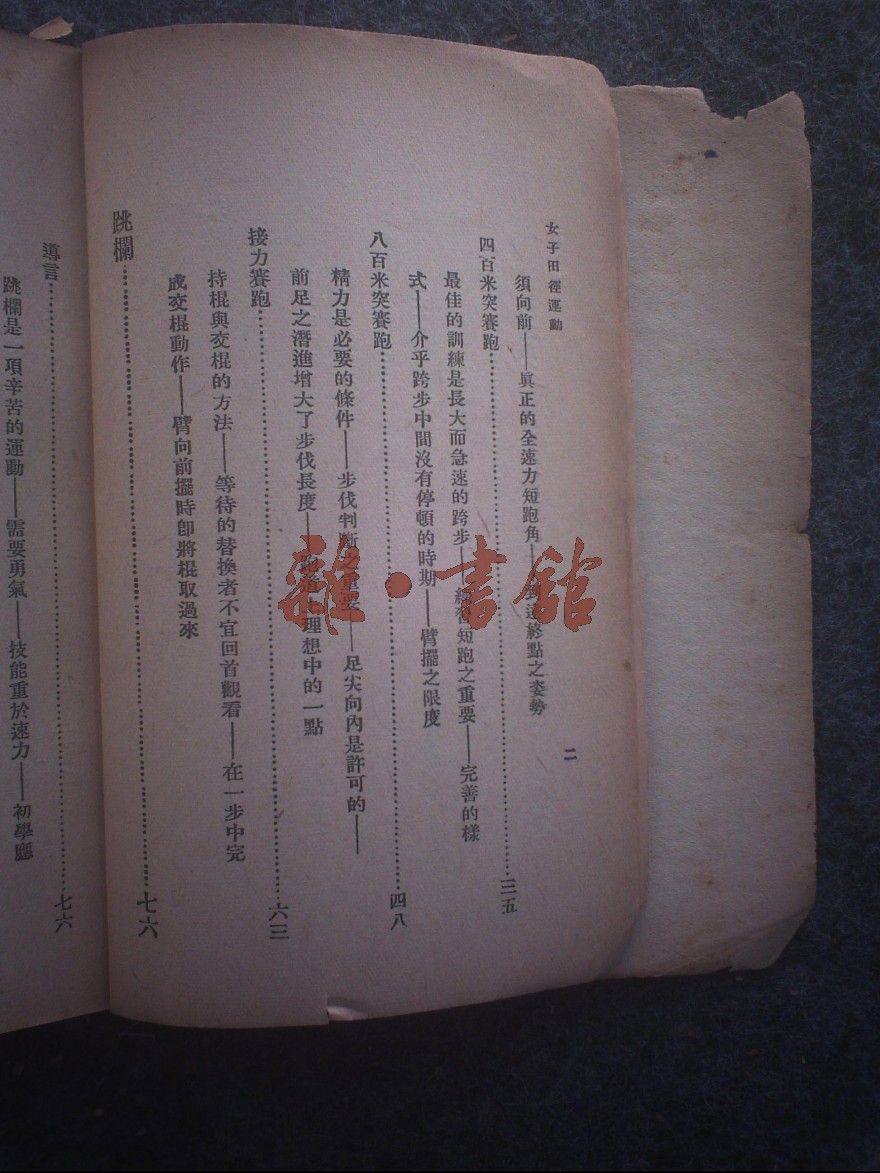 女子田徑運動
二
須向前——眞正的全速力短跑角——到達終點之姿勢
四百米突賽跑……三五
最佳的訓練是長大而急速的跨步——練習短跑之重要——完善的樣
式——介乎跨步中間沒有停頓的時期——臂擺之限度
八百米突賽跑……四八
精力是必要的條件——步伐判斷之重要——足尖向內是許可的——
前足之潛進增大了步伐長度——跑道上理想中的一點
接力賽跑……六三
持棍與交棍的方法——等待的替換者不宜回首觀看——在一步中完
成交棍動作——臂向前擺時卽將棍取過來
跳欄……七六
導言……七六
跳欄是一項辛苦的運動——需要勇氣——技能重於速力——初學應
雜·書館